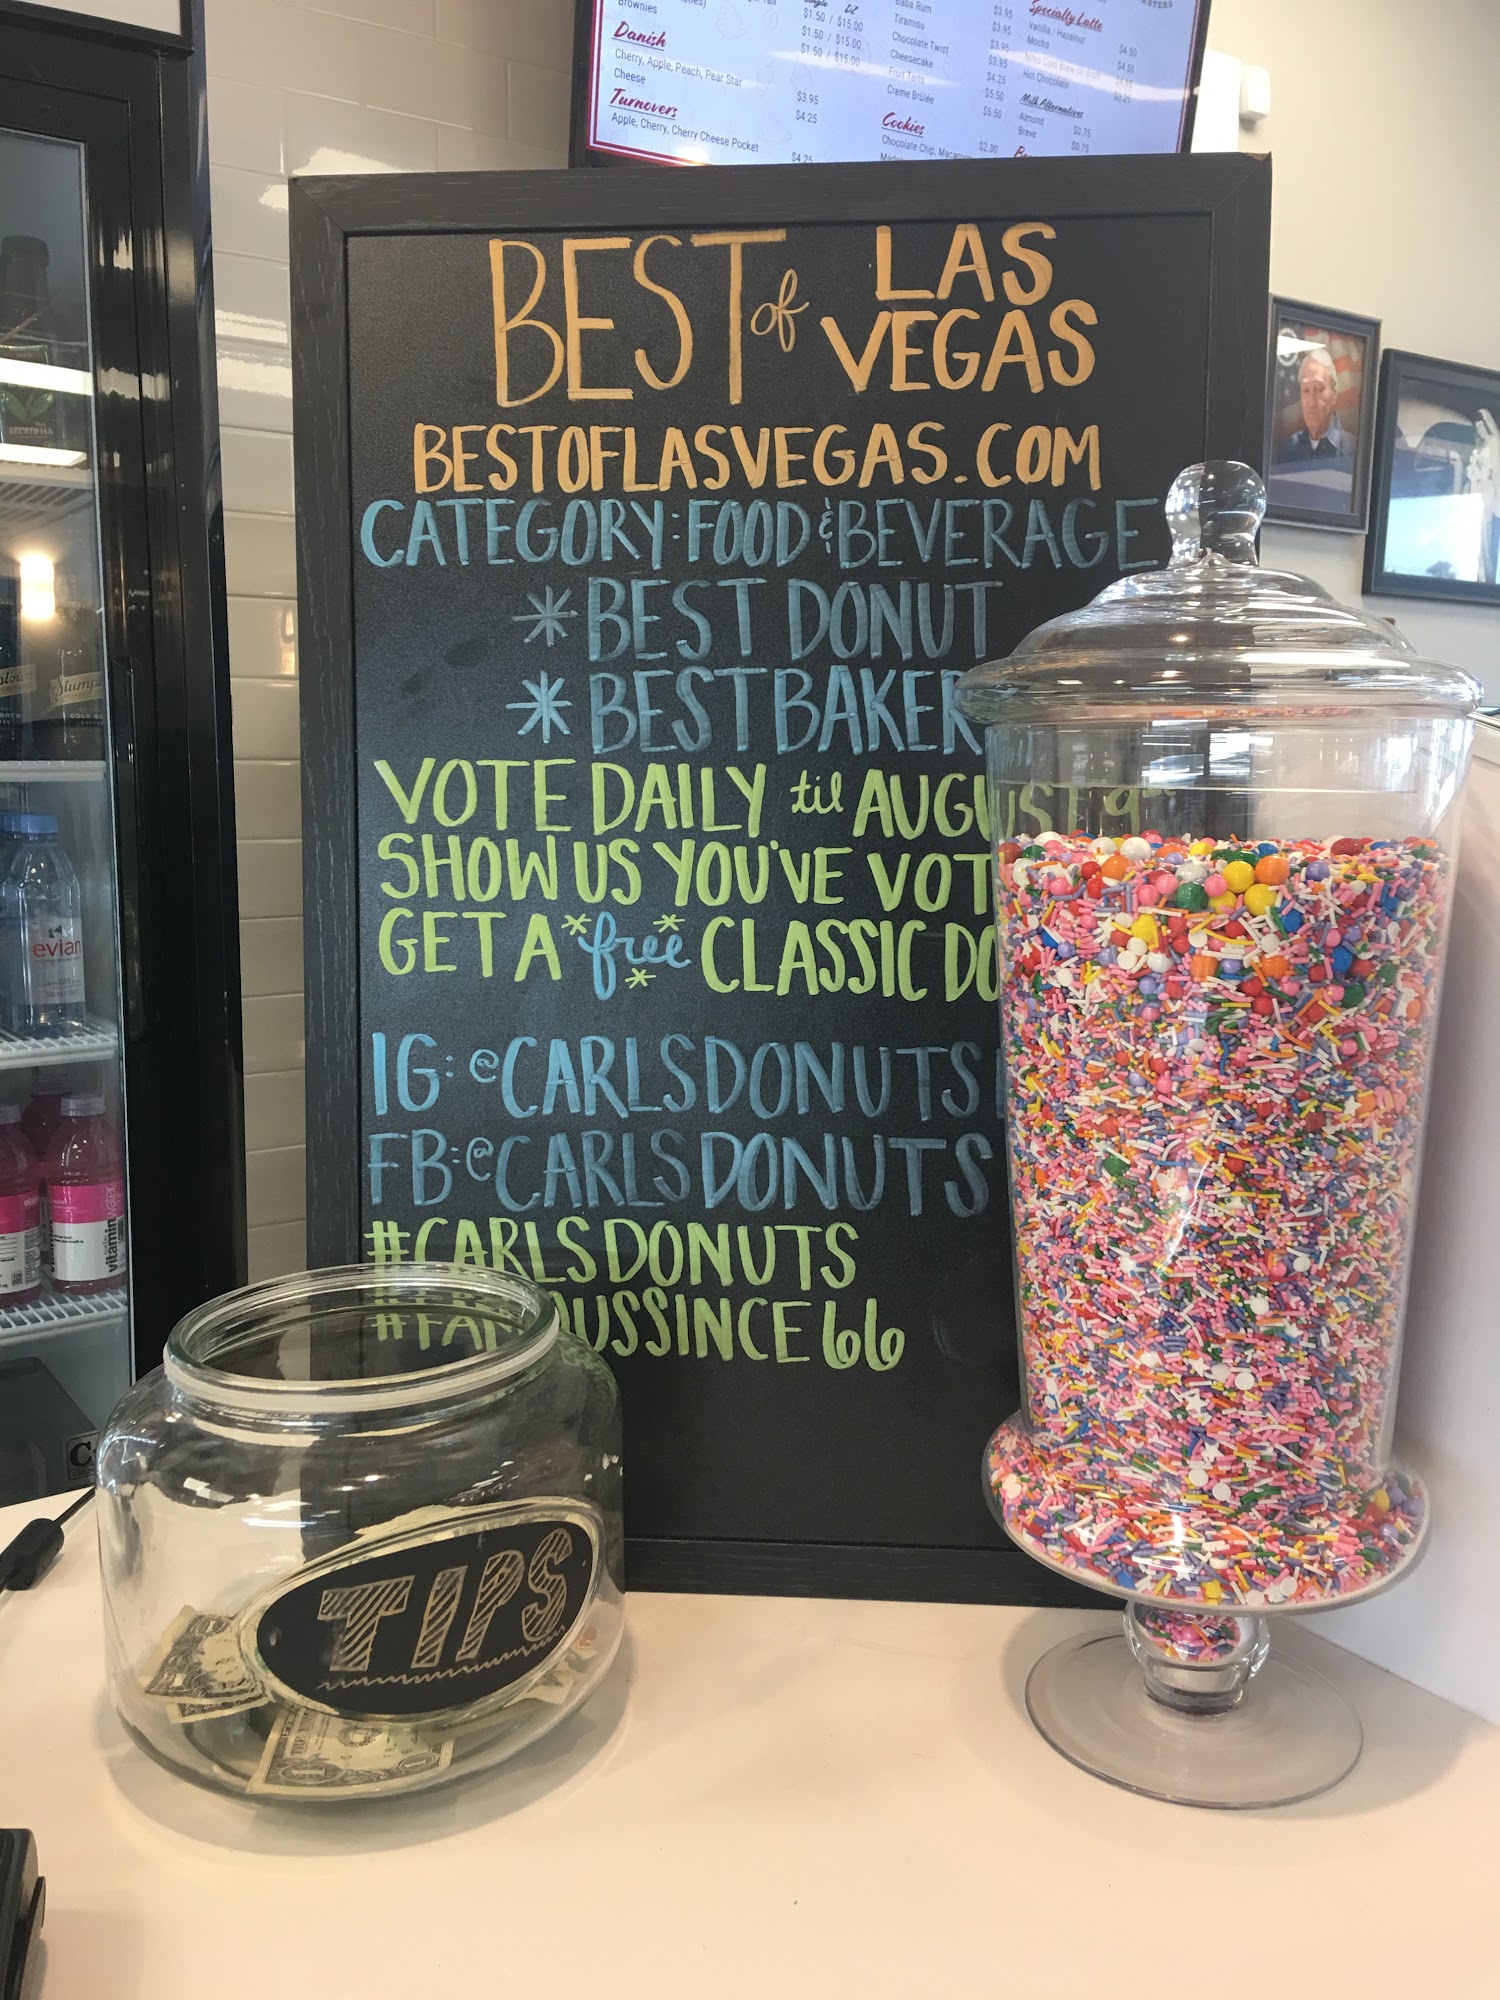 Brownies
Single DZ
$1.50 / $15.00
$1.50 / $15.00
$1.50 / $15.00
Danish
Cherry, Apple, Peach, Pear Star
$3.95
Cheese
$4.25
Turnovers
Apple, Cherry, Cherry Cheese Pocket
$4.25
Baba Rum
$3.95
Tiramisu
$3.95
Chocolate Twist
$3.95
Cheesecake
$3.95
Fruit Tarts
$4.25
Creme Brûlée
$5.50
$5.50
Cookies
Chocolate Chip,
$2.00
Specialty Latte
Vanilla / Hazelnut
$4.50
Mocha
$4.50
Hot Chocolate
$3.25
Milk Alternatives
Almond
$0.75
Breve
$0.75
BEST of LAS VEGAS
BESTOFLASVEGAS.COM
CATEGORY: FOOD & BEVERAGE
* BEST DONUT
* BEST BAKER
VOTE DAILY til AUGUST 9
SHOW US YOU'VE VOT
GET A *free* CLASSIC DO
IG: @CARLSDONUTS
FB: @CARLSDONUTS
#CARLSDONUTS
#FAMOUSSINCE66
TIPS
BREWED TEA
Stump
COLD BREW
evian
vitaminwater